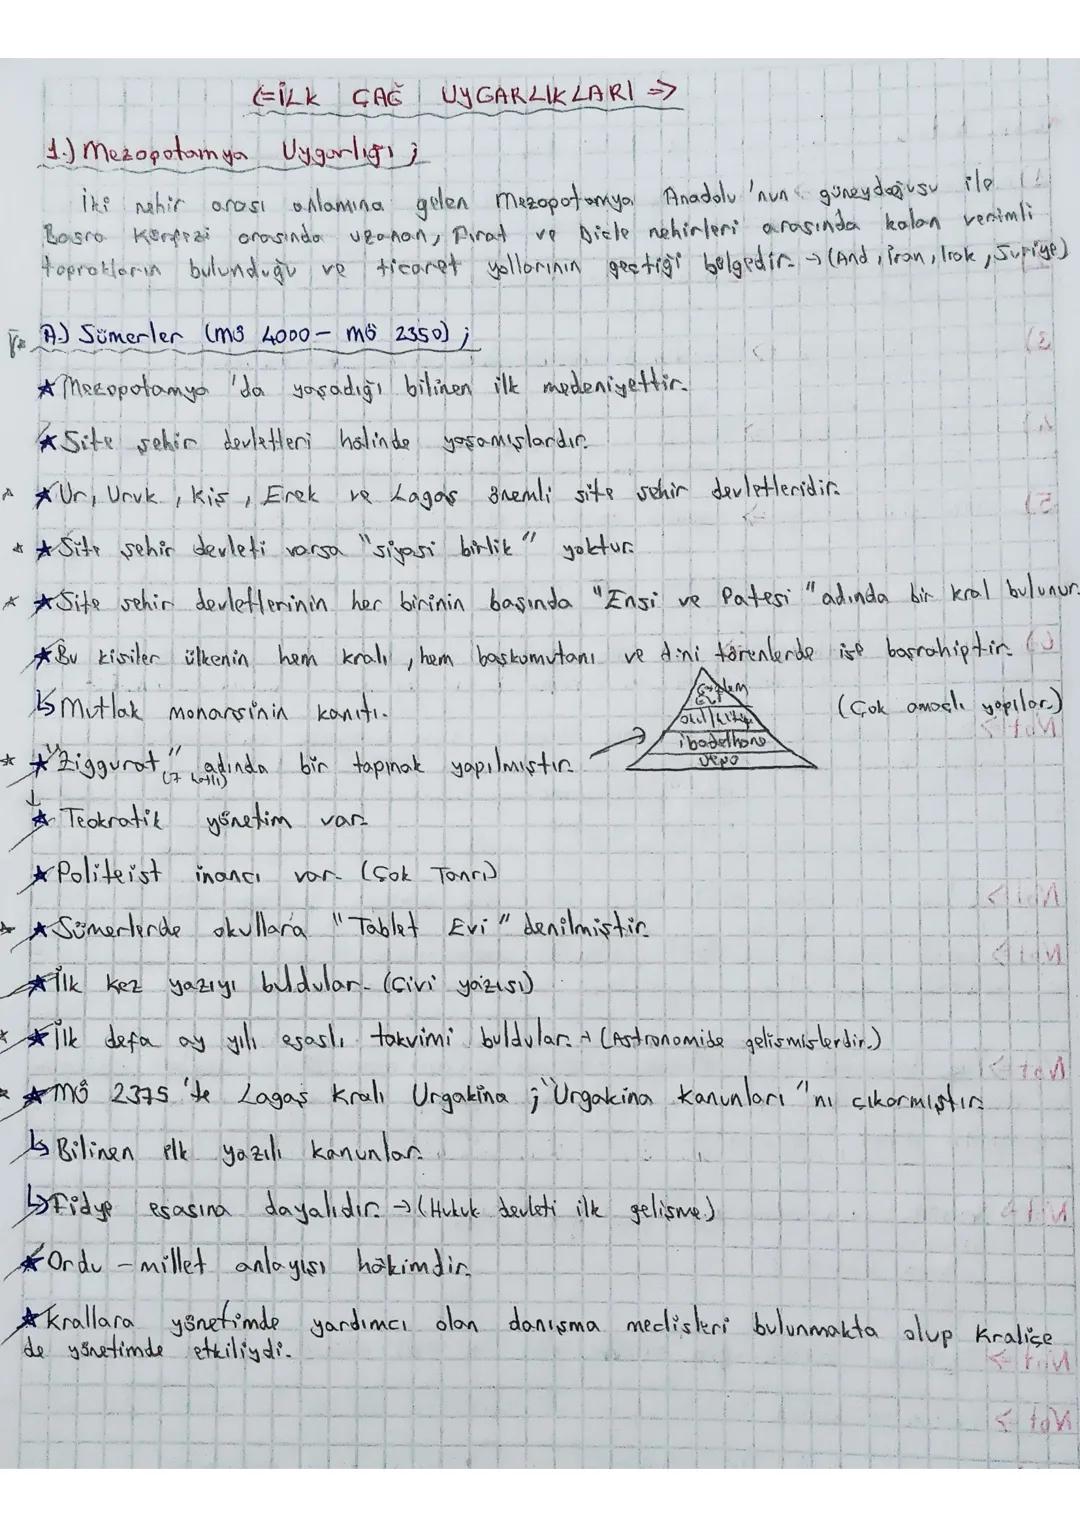 <= İLK ÇAĞ UYGARLIKLARI =>
1.) Mezopotamya Uygarlığı ;
İki nehir arası anlamına gelen Mezopotamya Anadolu'nun güneydoğusu ile
Basra Körfezi arasında uzanan, Fırat ve Dicle nehirleri arasında kalan verimli
toprakların bulunduğu ve ticaret yollarının geçtiği bölgedir. → (And, İran, Irak, Suriye)
A.) Sümerler (MÖ 4000 - MÖ 2350) ;
★ Mezopotamya'da yaşadığı bilinen ilk medeniyettir.
★ Site şehir devletleri halinde yaşamışlardır.
★ Ur, Uruk, Kiş, Erek ve Lagaş önemli site şehir devletleridir.
★ Site şehir devleti varsa "siyasi birlik" yoktur.
★ Site şehir devletlerinin her birinin başında "Ensi ve Patesi" adında bir kral bulunur.
★ Bu kişiler ülkenin hem kralı, hem başkomutanı ve dini törenlerde ise başrahiptir.
↳ Mutlak monarşinin kanıtı.
(Çok amaçlı yapılar.)
★ "Ziggurat" adında bir tapınak yapılmıştır. →
(7 katlı)
Gözlem
Evi
okul/kütüp
ibadethane
depo
★ Teokratik yönetim var.
★ Politeist inancı var. (Çok Tanrı)
★ Sümerlerde okullara "Tablet Evi" denilmiştir.
★ İlk kez yazıyı buldular. (Çivi yazısı)
★ İlk defa ay yılı esaslı takvimi buldular. → (Astronomide gelişmişlerdir.)
★ MÖ 2375'te Lagaş Kralı Urgakina ; "Urgakina Kanunları"nı çıkarmıştır.
↳ Bilinen ilk yazılı kanunlar.
↳ Fidye esasına dayalıdır. → (Hukuk devleti ilk gelişme.)
★ Ordu - millet anlayışı hakimdir.
★ Krallara yönetimde yardımcı olan danışma meclisleri bulunmakta olup Kraliçe
de yönetimde etkiliydi.